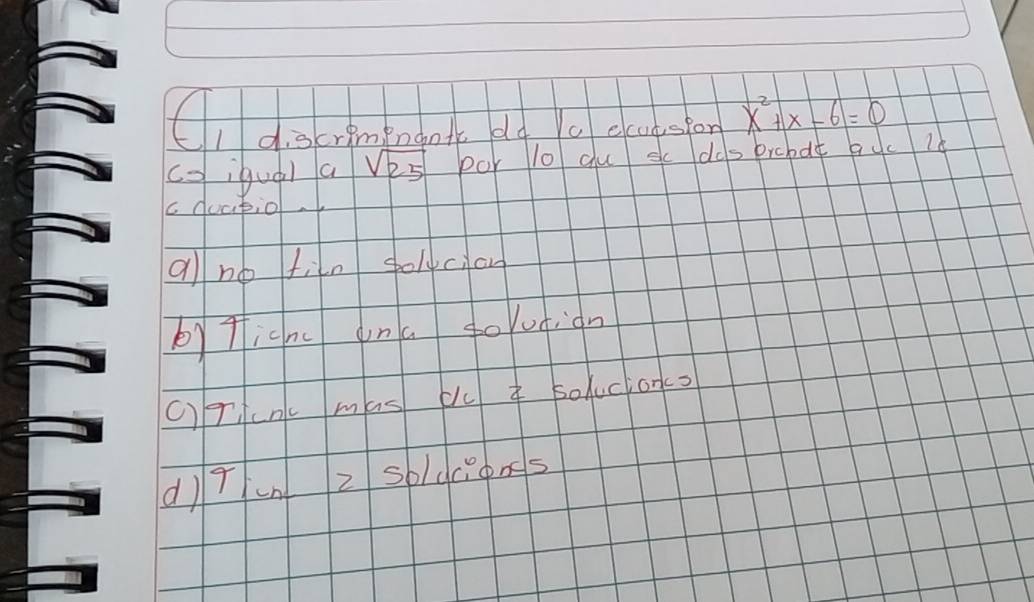 El discriminante de la ecuasion x²+x-6=0
es igual a √25 por lo qu se desprende que la
ecuacio...
a) no tien solucion
b) Tiene una solution
c) Tiene mas de 2 soluciones
d) Tiene 2 soluciones